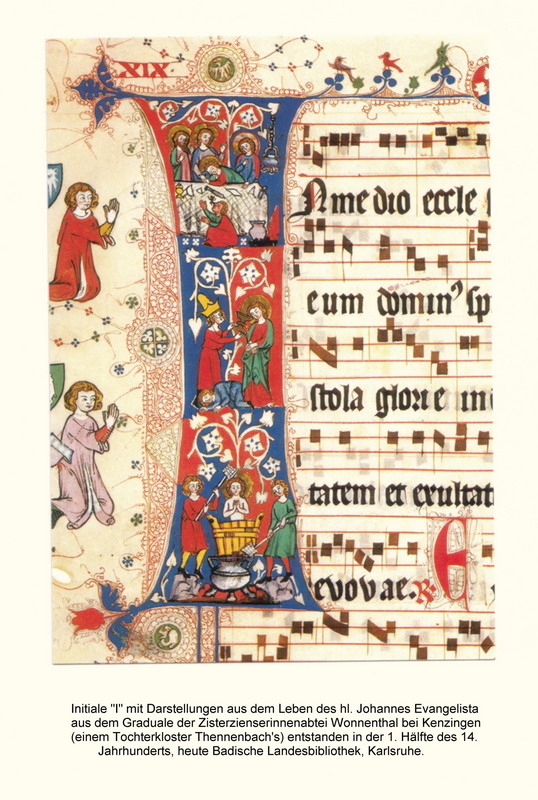 ·XIX·
N me dio eccle
eum dominꝰ sp
stola glorie in
tatem et exultat
evovae. ℟ E
Initiale "I" mit Darstellungen aus dem Leben des hl. Johannes Evangelista
aus dem Graduale der Zisterzienserinnenabtei Wonnenthal bei Kenzingen
(einem Tochterkloster Thennenbach's) entstanden in der 1. Hälfte des 14.
Jahrhunderts, heute Badische Landesbibliothek, Karlsruhe.